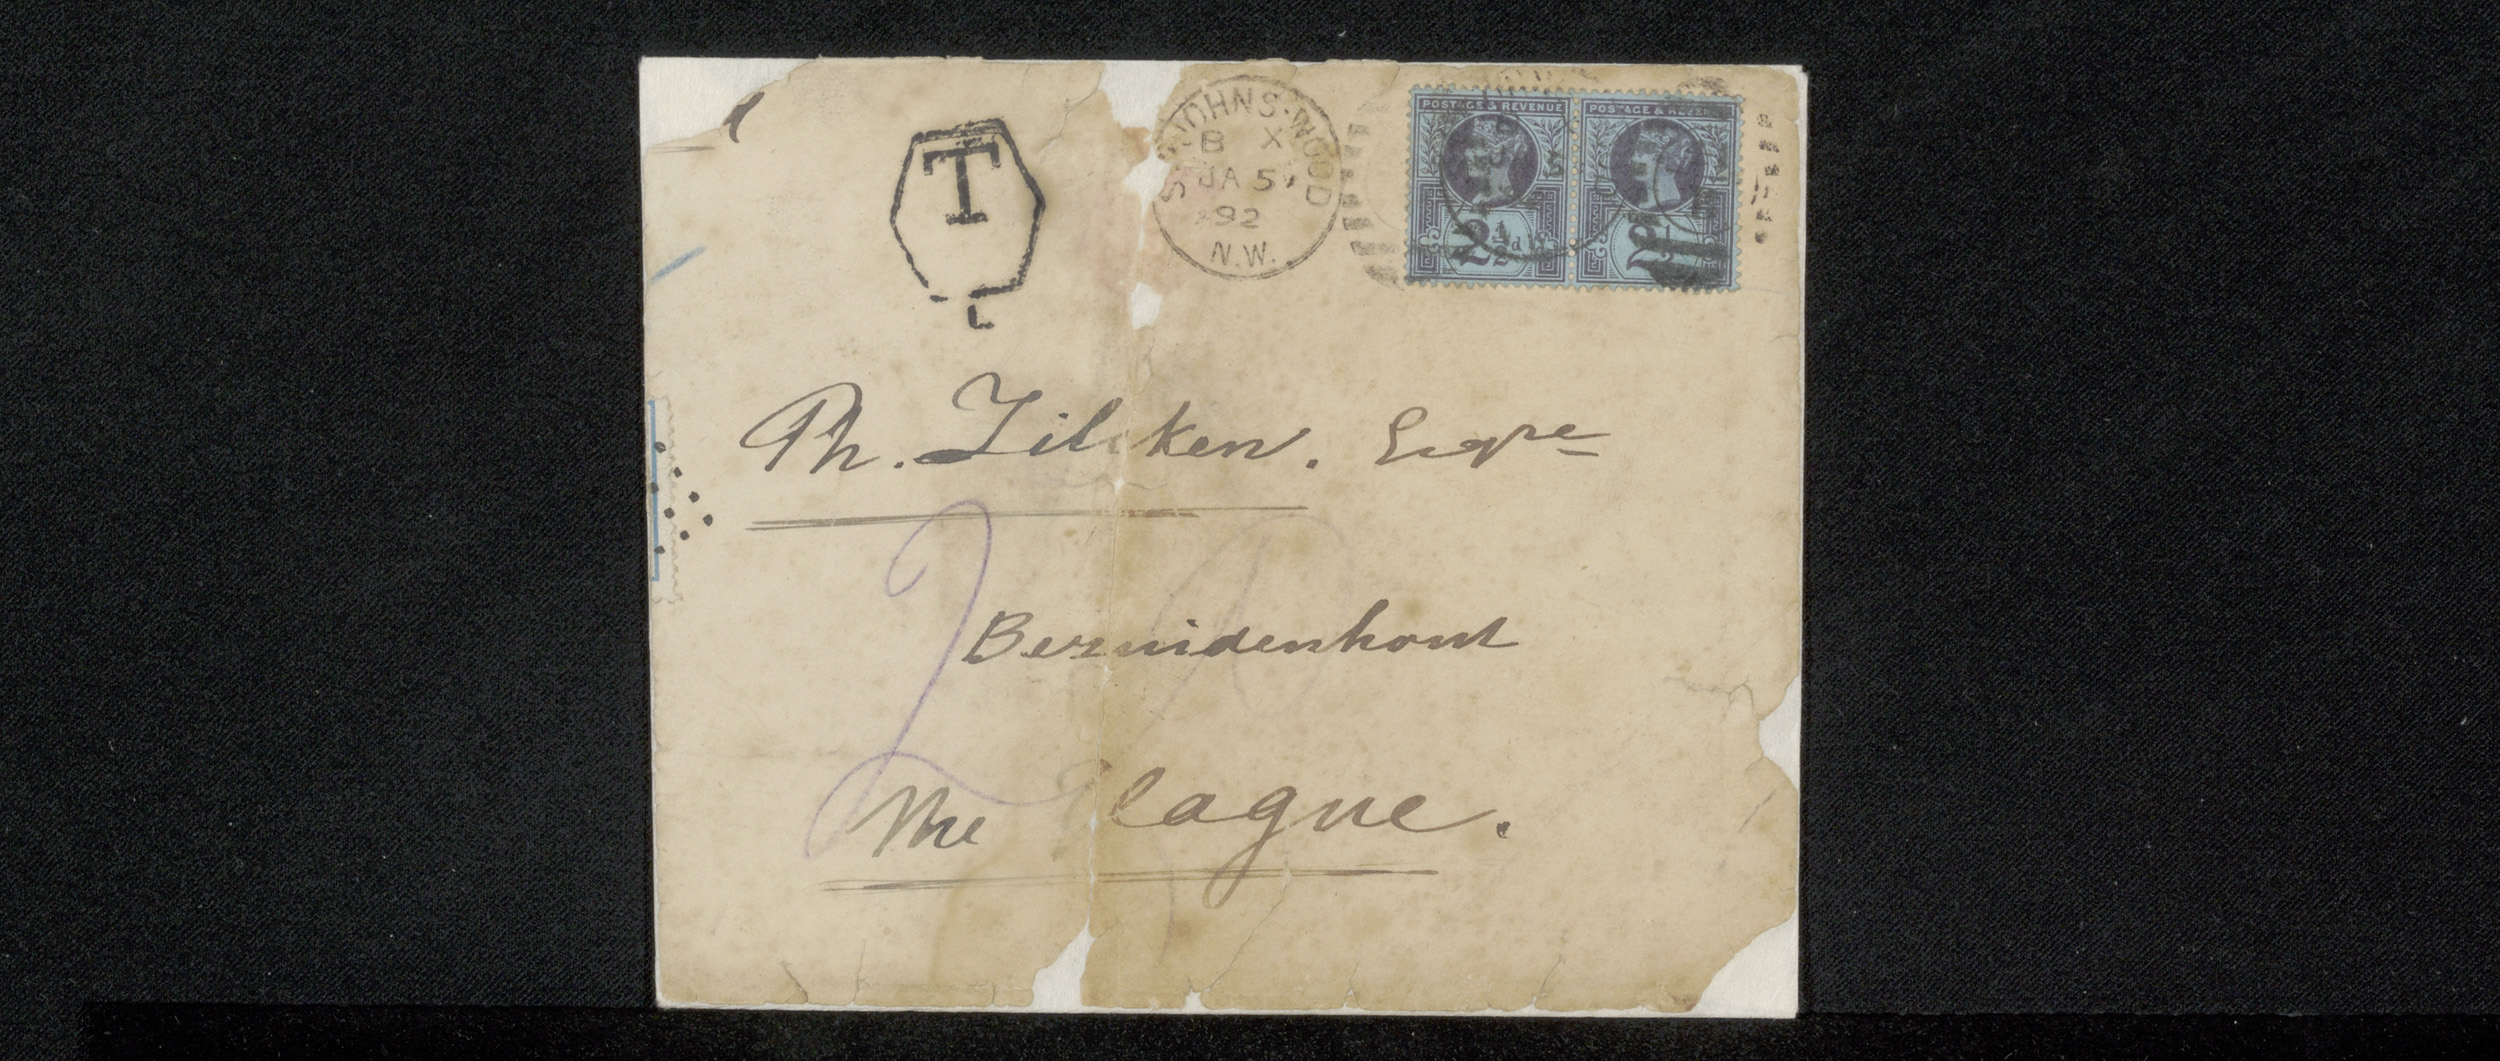 T
L
ST JOHNS·WOOD
B X
JA 5
92
N.W.
POSTAGE & REVENUE POSTAGE & REVENUE
2½d 2½
Ph. Zilcken. Esqre
20
Bezuidenhout
The Hague.